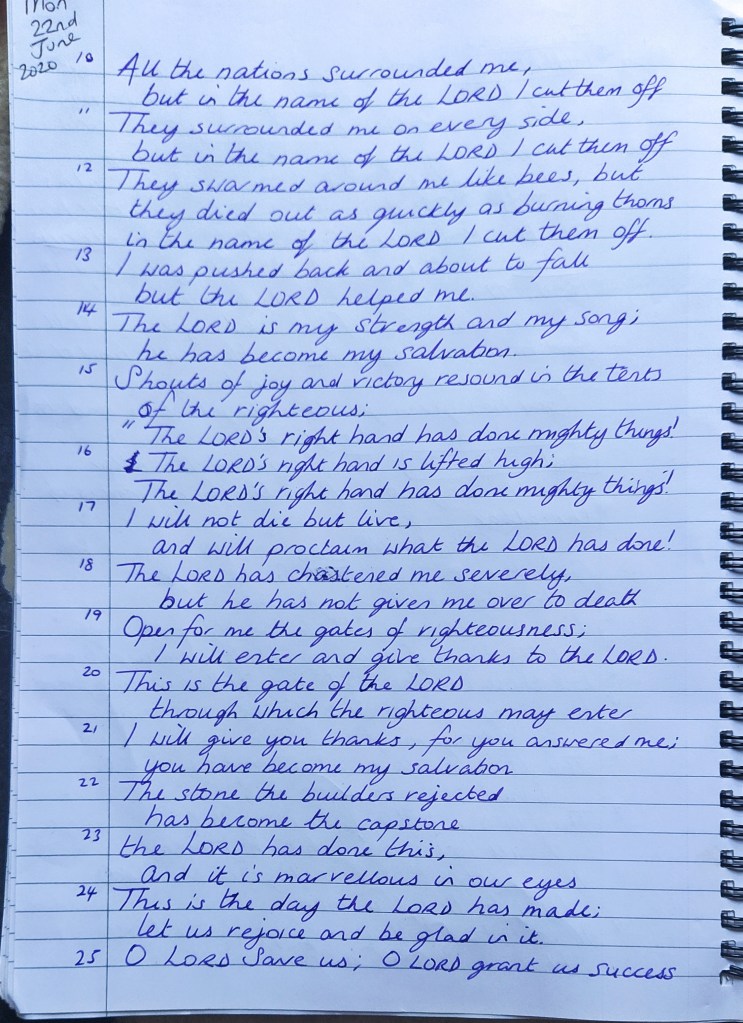 Mon
22nd
June
2020
10 All the nations surrounded me,
but in the name of the LORD I cut them off
11 They surrounded me on every side,
but in the name of the LORD I cut them off
12 They swarmed around me like bees, but
they died out as quickly as burning thorns
in the name of the LORD I cut them off.
13 I was pushed back and about to fall
but the LORD helped me.
14 The LORD is my strength and my song;
he has become my salvation.
15 Shouts of joy and victory resound in the tents
of the righteous;
" The LORD's right hand has done mighty things!
16 The LORD's right hand is lifted high;
The LORD's right hand has done mighty things!'
17 I will not die but live,
and will proclaim what the LORD has done!
18 The LORD has chastened me severely,
but he has not given me over to death
19 Open for me the gates of righteousness;
I will enter and give thanks to the LORD.
20 This is the gate of the LORD
through which the righteous may enter
21 I will give you thanks, for you answered me;
you have become my salvation
22 The stone the builders rejected
has become the capstone
23 the LORD has done this,
and it is marvellous in our eyes
24 This is the day the LORD has made;
let us rejoice and be glad in it.
25 O LORD save us; O LORD grant us success